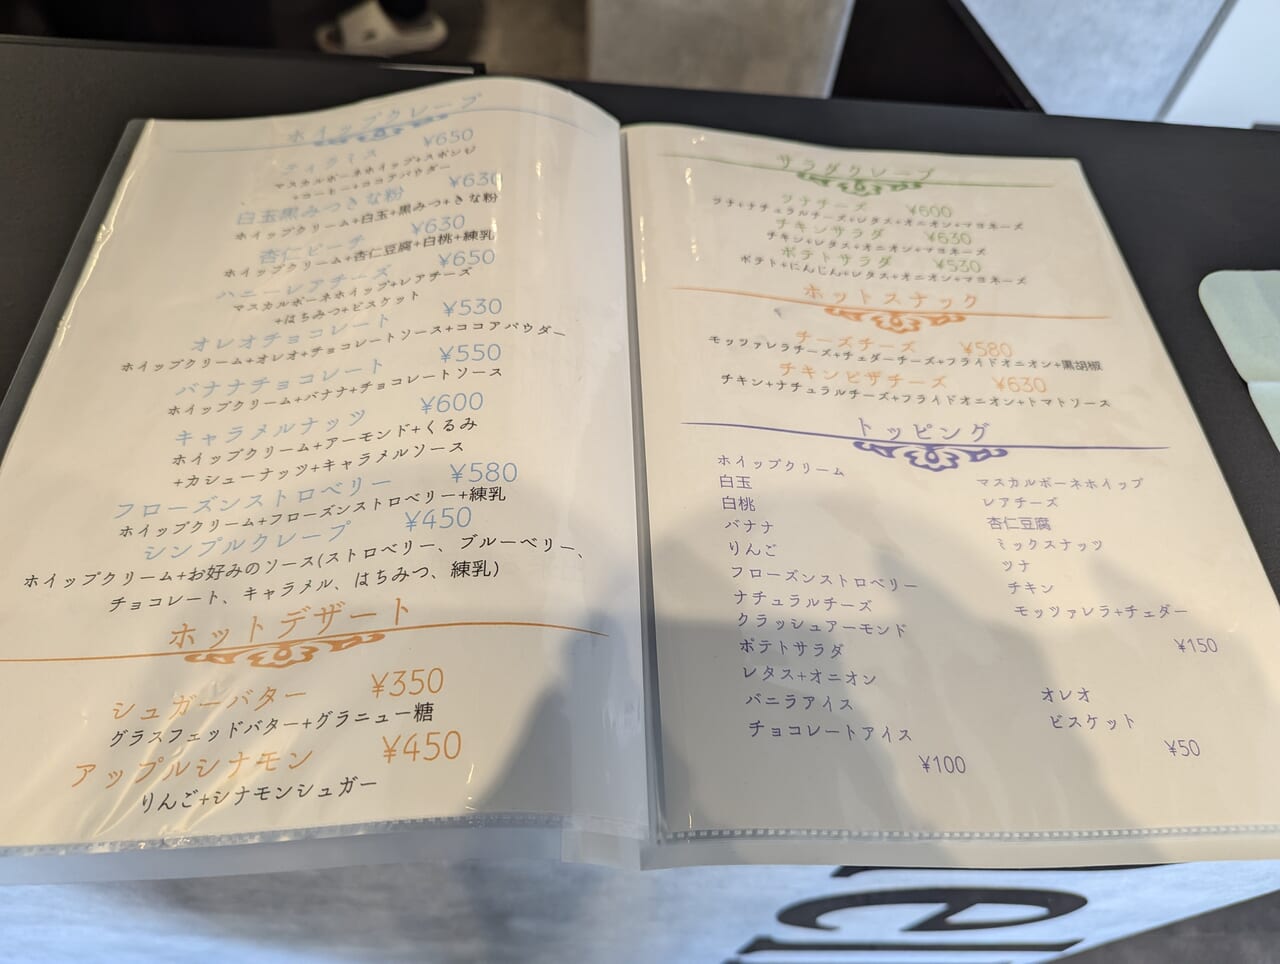 ホイップクレープ
ティラミス ¥650
マスカルポーネホイップ+スポンジ
+コーヒー+ココアパウダー
白玉黒みつきな粉 ¥630
ホイップクリーム+白玉+黒みつ+きな粉
杏仁ピーチ ¥630
ホイップクリーム+杏仁豆腐+白桃+練乳
ハニーレアチーズ ¥650
マスカルポーネホイップ+レアチーズ
+はちみつ+ビスケット
オレオチョコレート ¥530
ホイップクリーム+オレオ+チョコレートソース+ココアパウダー
バナナチョコレート ¥550
ホイップクリーム+バナナ+チョコレートソース
キャラメルナッツ ¥600
ホイップクリーム+アーモンド+くるみ
+カシューナッツ+キャラメルソース
フローズンストロベリー ¥580
ホイップクリーム+フローズンストロベリー+練乳
シンプルクレープ ¥450
ホイップクリーム+お好みのソース(ストロベリー、ブルーベリー、
チョコレート、キャラメル、はちみつ、練乳)
ホットデザート
シュガーバター ¥350
グラスフェッドバター+グラニュー糖
アップルシナモン ¥450
りんご+シナモンシュガー
サラダクレープ
ツナチーズ ¥600
ツナ+ナチュラルチーズ+レタス+オニオン+マヨネーズ
チキンサラダ ¥630
チキン+レタス+オニオン+マヨネーズ
ポテトサラダ ¥530
ポテト+にんじん+レタス+オニオン+マヨネーズ
ホットスナック
チーズチーズ ¥580
モッツァレラチーズ+チェダーチーズ+フライドオニオン+黒胡椒
チキンピザチーズ ¥630
チキン+ナチュラルチーズ+フライドオニオン+トマトソース
トッピング
ホイップクリーム
白玉
白桃
バナナ
りんご
フローズンストロベリー
ナチュラルチーズ
クラッシュアーモンド
ポテトサラダ
レタス+オニオン
バニラアイス
チョコレートアイス
¥100
マスカルポーネホイップ
レアチーズ
杏仁豆腐
ミックスナッツ
ツナ
チキン
モッツァレラ+チェダー
¥150
オレオ
ビスケット
¥50